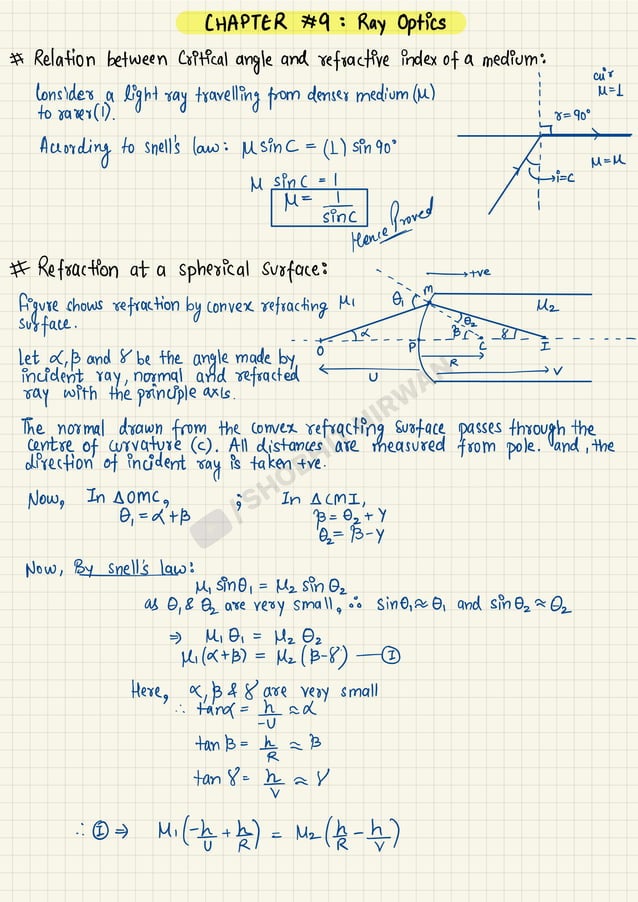 CHAPTER #9 : Ray Optics
# Relation between Critical angle and refractive index of a medium:
Consider a light ray travelling from denser medium (μ)
to rarer(1).
According to snell's law: μ sinC = (1) sin 90°
μ sinC = 1
μ = 1/sinC
Hence Proved
air
μ=1
r=90°
μ=μ
i=C
# Refraction at a spherical surface:
figure shows refraction by convex refracting
surface.
let α,β and γ be the angle made by
incident ray, normal and refracted
ray with the principle axis.
→+ve
μ1
θ1
M
μ2
θ2
α
β
γ
O
P
C
I
R
U
V
/SHOBHIT NIRWAN
The normal drawn from the convex refracting surface passes through the
centre of curvature (c). All distances are measured from pole. and, the
direction of incident ray is taken +ve.
Now, In ΔOMC, ; In ΔCMI,
θ1 = α+β β = θ2 + γ
θ2 = β-γ
Now, By snell's law:
μ1 sinθ1 = μ2 sinθ2
as θ1 & θ2 are very small, ∴ sinθ1 ≈ θ1 and sinθ2 ≈ θ2
⇒ μ1 θ1 = μ2 θ2
μ1(α+β) = μ2(β-γ) — Ⓘ
Here, α, β & γ are very small
∴ tanα = h/-U ≈ α
tan β = h/R ≈ β
tan γ = h/V ≈ γ
∴ Ⓘ ⇒ μ1(-h/U + h/R) = μ2(h/R - h/V)